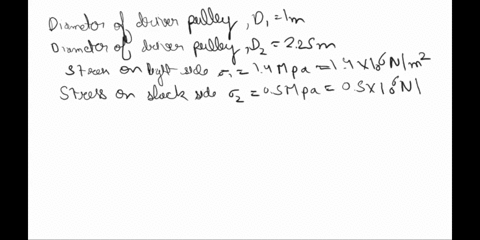 Diameter of driver pulley, D₁ = 1m
Diameter of driver pulley, D₂ = 2.25m
Stress on tight side σ₁ = 1.4 Mpa = 1.4 × 10⁶ N/m²
Stress on slack side σ₂ = 0.5 Mpa = 0.5 × 10⁶ N/